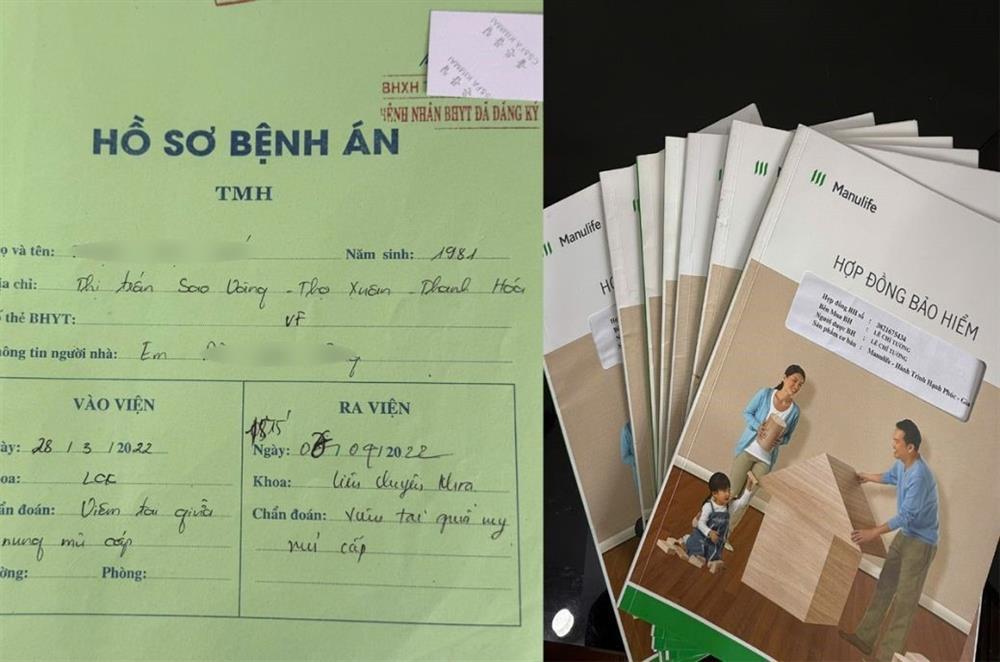 BHXH T
BỆNH NHÂN BHYT ĐÃ ĐĂNG KÝ
HỒ SƠ BỆNH ÁN
TMH
ọ và tên:
Năm sinh: 1981
ịa chỉ: Thị trấn Sao Vàng - Thọ Xuân - Thanh Hóa
ố thẻ BHYT:
hông tin người nhà: Em
VÀO VIỆN
gày: 28 / 3 / 2022
hoa: LCK
hẩn đoán: Viêm tai giữa
nung mủ cấp
ường: Phòng:
RA VIỆN
Ngày: 07/04/2022
Khoa: Liên chuyên khoa
Chẩn đoán: Viêm tai giữa
mủ cấp
Manulife
HỢP ĐỒNG BẢO HIỂM
Hợp đồng BH số : 3021675434
Bên Mua BH : LÊ CHÍ TƯỜNG
Người được BH : LÊ CHÍ TƯỜNG
Sản phẩm cơ bản : Manulife - Hành Trình Hạnh Phúc - Gia
Manulife